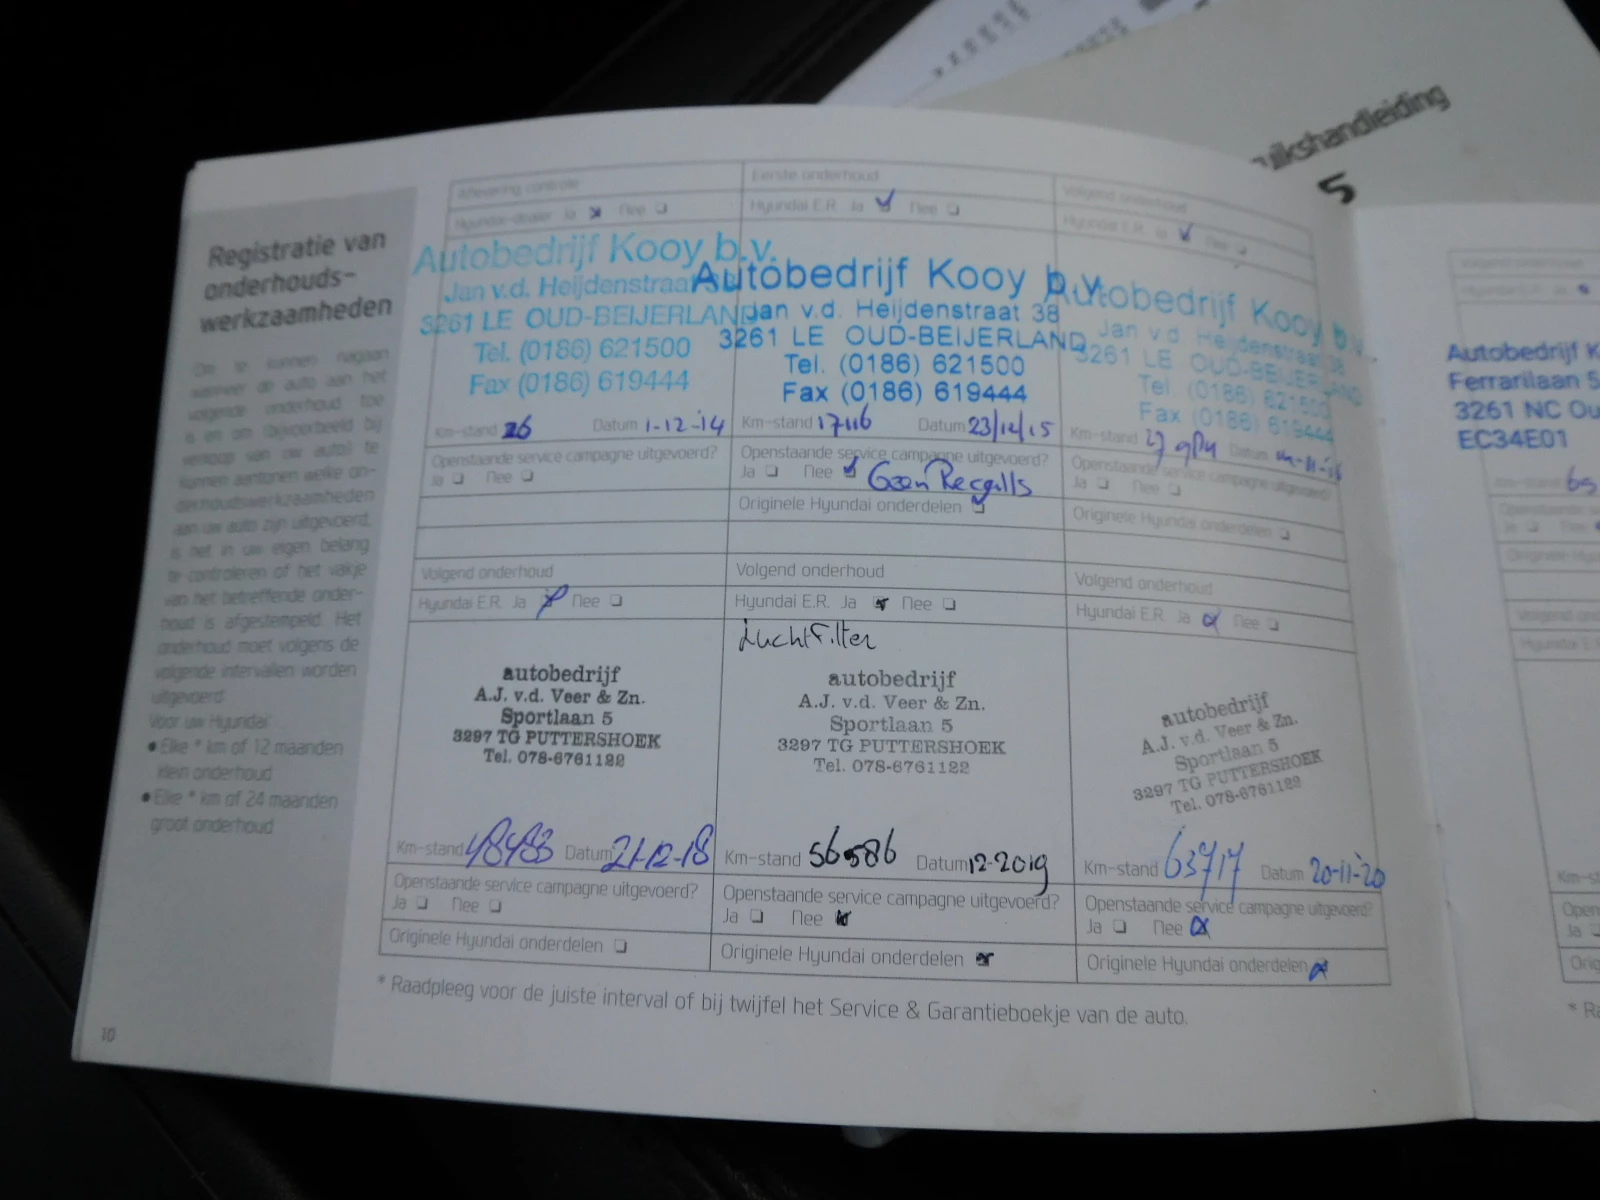 uikshandleiding
5
Registratie van
onderhouds-
werkzaamheden
Om te kunnen nagaan
wanneer de auto aan het
volgende onderhoud toe
is en om (bijvoorbeeld bij
verkoop van uw auto) te
kunnen aantonen welke on-
derhoudswerkzaamheden
aan uw auto zijn uitgevoerd,
is het in uw eigen belang
te controleren of het vakje
van het betreffende onder-
houd is afgestempeld. Het
onderhoud moet volgens de
volgende intervallen worden
uitgevoerd.
Voor uw Hyundai:
• Elke * km of 12 maanden
klein onderhoud
• Elke * km of 24 maanden
groot onderhoud
10
Aflevering controle
Hyundai-dealer Ja Nee
Autobedrijf Kooy b.v.
Jan v.d. Heijdenstraat
3261 LE OUD-BEIJERLAND
Tel. (0186) 621500
Fax (0186) 619444
Km-stand 26 Datum 1-12-'14
Openstaande service campagne uitgevoerd?
Ja Nee
Eerste onderhoud
Hyundai E.R. Ja Nee
Autobedrijf Kooy b.v.
Jan v.d. Heijdenstraat 38
3261 LE OUD-BEIJERLAND
Tel. (0186) 621500
Fax (0186) 619444
Km-stand 17116 Datum 23/12/15
Openstaande service campagne uitgevoerd?
Ja Nee Geen Recalls
Originele Hyundai onderdelen
Volgend onderhoud
Hyundai E.R. Ja Nee
Autobedrijf Kooy b.v.
Jan v.d. Heijdenstraat 38
3261 LE OUD-BEIJERLAND
Tel. (0186) 621500
Fax (0186) 619444
Km-stand Datum
Openstaande service campagne uitgevoerd?
Ja Nee
Originele Hyundai onderdelen
Volgend onderhoud
Hyundai E.R. Ja Nee
autobedrijf
A.J. v.d. Veer & Zn.
Sportlaan 5
3297 TG PUTTERSHOEK
Tel. 078-6761122
Km-stand 48483 Datum 21-12-18
Openstaande service campagne uitgevoerd?
Ja Nee
Originele Hyundai onderdelen
Volgend onderhoud
Hyundai E.R. Ja Nee
Luchtfilter
autobedrijf
A.J. v.d. Veer & Zn.
Sportlaan 5
3297 TG PUTTERSHOEK
Tel. 078-6761122
Km-stand 56586 Datum 12-2019
Openstaande service campagne uitgevoerd?
Ja Nee
Originele Hyundai onderdelen
Volgend onderhoud
Hyundai E.R. Ja Nee
autobedrijf
A.J. v.d. Veer & Zn.
Sportlaan 5
3297 TG PUTTERSHOEK
Tel. 078-6761122
Km-stand 63717 Datum 20-11-'20
Openstaande service campagne uitgevoerd?
Ja Nee
Originele Hyundai onderdelen
* Raadpleeg voor de juiste interval of bij twijfel het Service & Garantieboekje van de auto.
Volgend onderhoud
Hyundai E.R. Ja
Autobedrijf K
Ferrarilaan 5
3261 NC Ou
EC34E01
Ja Nee
Volgend
Hyundai E.
Km-st
Open
Ja
Orig
* Ra